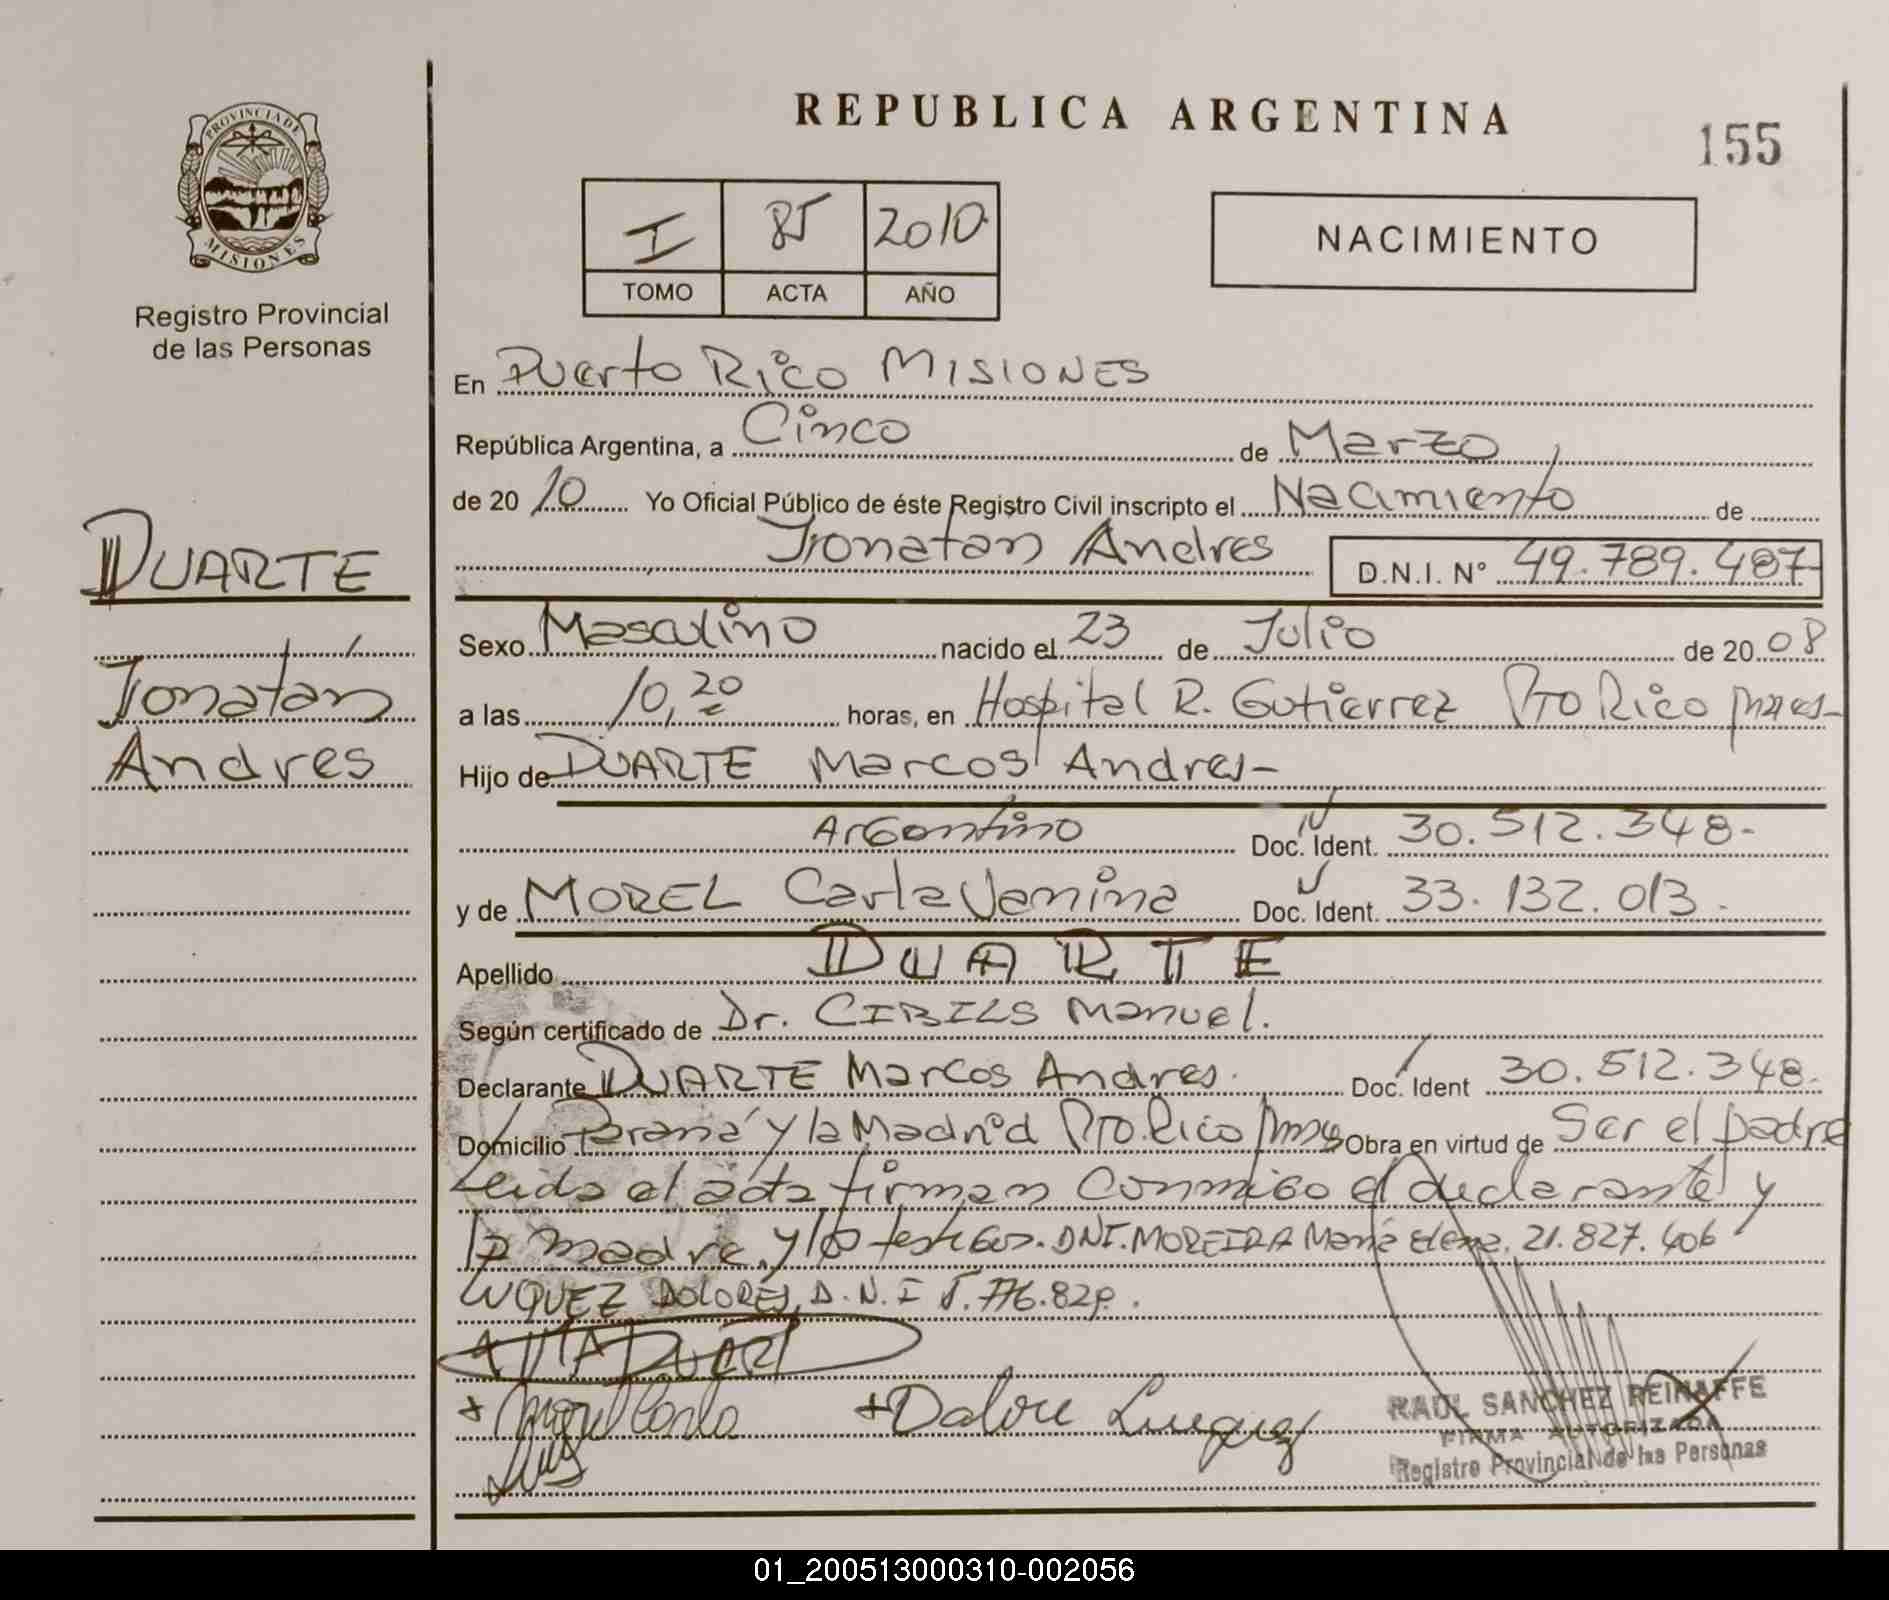 REPUBLICA ARGENTINA
155
PROVINCIA DE
MISIONES
Registro Provincial
de las Personas
I 85 2010
TOMO ACTA AÑO
NACIMIENTO
En Puerto Rico MISIONES
República Argentina, a Cinco de Marzo
de 20 10 Yo Oficial Público de éste Registro Civil inscripto el Nacimiento de
Jonatan Andres D.N.I. N° 49.789.487
DUARTE
Jonatán
Andrés
Sexo Masculino nacido el 23 de Julio de 20 08
a las 10,20 horas, en Hospital R. Gutierrez Pto Rico Mnes-
Hijo de DUARTE Marcos Andres-
Argentino Doc. Ident. 30.512.348-
y de MOREL Carla Vanina Doc. Ident. 33.132.013-
Apellido DUARTE
Según certificado de Dr. CIBILS Manuel.
Declarante DUARTE Marcos Andres. Doc. Ident 30.512.348.
Domicilio Paraná y la Madrid Pto. Rico Mnes Obra en virtud de Ser el padre
Leida el acta firman conmigo el declarante y
la madre, y los testigos. DNI. MOREIRA María Elena. 21.827.406
LUQUEZ DOLORES, D.N.I 5.776.829.
DUART
+ Morel Carla +Dalore Luquez
RAUL SANCHEZ REINAFFE
FIRMA AUTORIZADA
Registro Provincial de las Personas
01_200513000310-002056